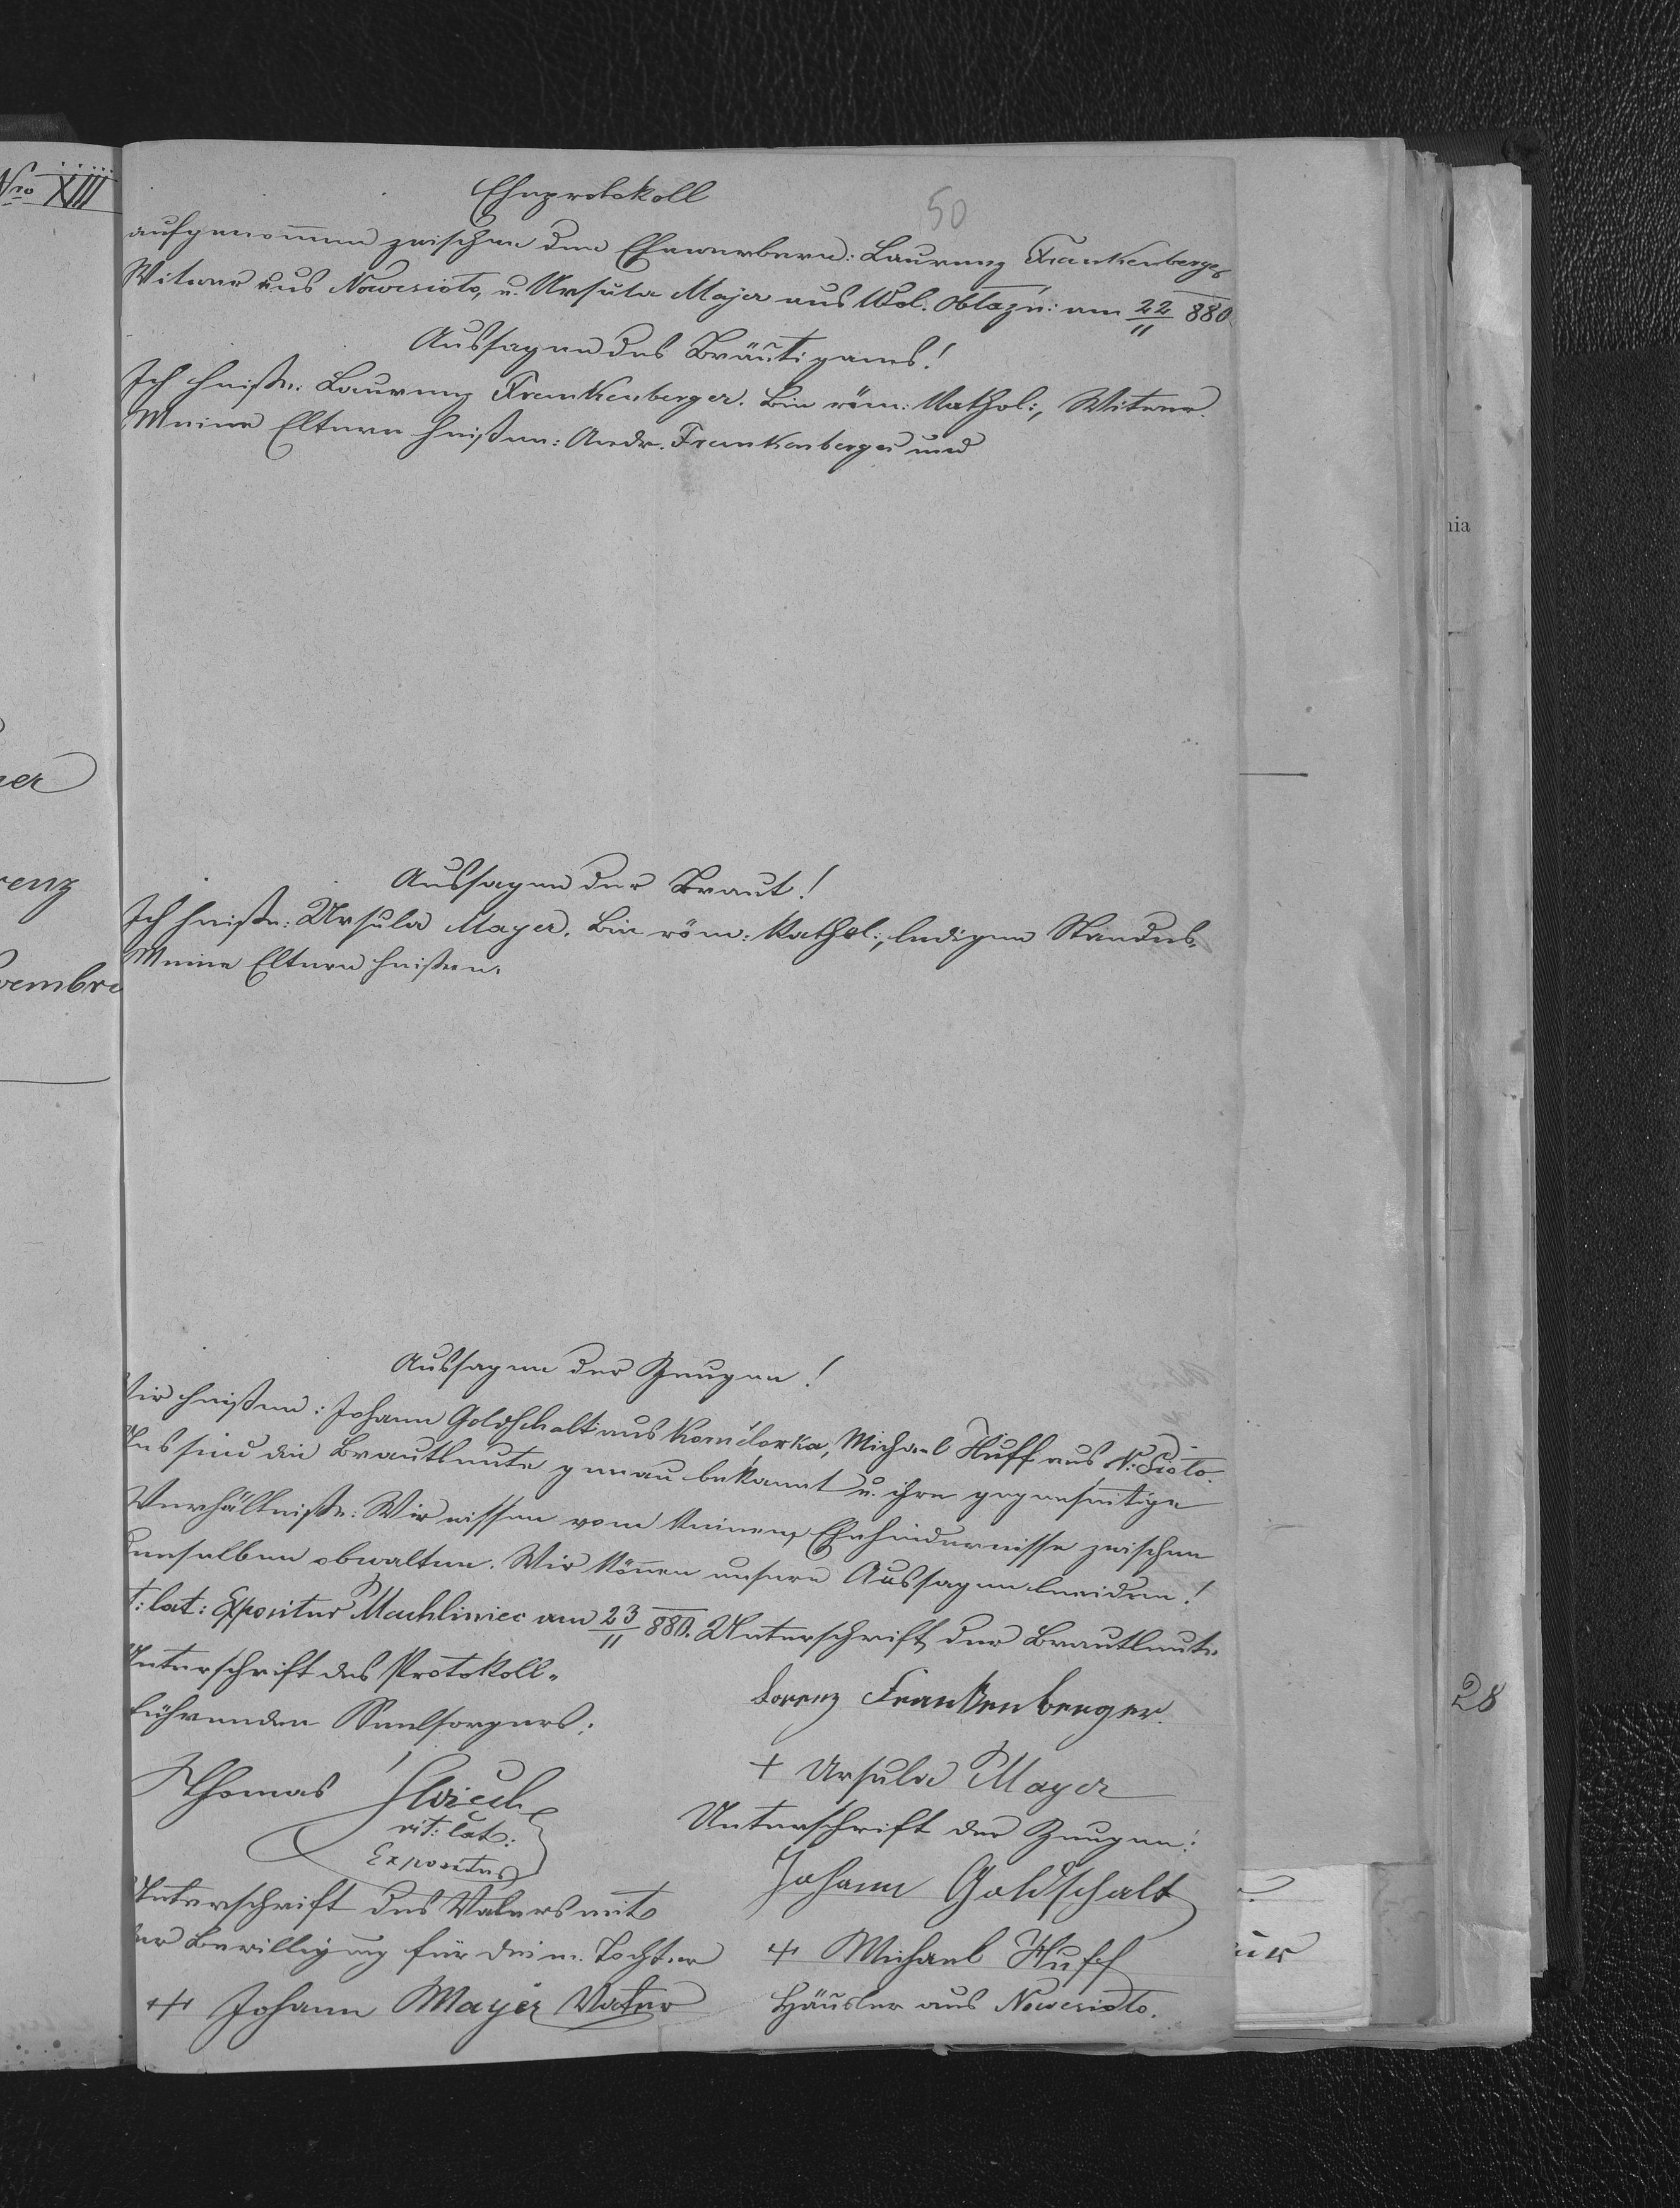 Nro XIII
50
Eheprotokoll
aufgenommen zwischen den Ehewerbern: Laurenz Frankenberger
Witwer aus Nowesioło, u. Ursula Majer aus Wol. Obłazn: am 22/11 880.
Aussagen des Bräutigams!
Ich heiße: Laurenz Frankenberger. Bin röm: Kathol:, Witwer.
Meine Eltern heißen: Andr. Frankenberger und
Aussagen der Braut!
Ich heiße: Ursula Mayer. Bin röm: Kathol:, ledigen Standes,
Meine Eltern heißen:
Aussagen der Zeugen!
Wir heißen: Johann Goldschalt aus Kornelowka, Michael Huff aus N: Sioło.
Uns sind die Brautleute genau bekannt u. ihre gegenseitige
Verhältniße: Wir wissen vom keinem Ehehindernisse zwischen
denselben obwalten. Wir können unsere Aussagen beeiden!
t: lat: Expositur Machliniec am 23/11 880. Unterschrift der Brautleute
Unterschrift des Protokoll-
führenden Seelsorgers:
Lorenz Frankenberger.
Thomas
rit: lat:
Expositus
+ Ursula Mayer
Unterschrift der Zeugen:
Johann Goldschalt
Unterschrift des Vaters mit
der Bewilligung für die m. Tochter
+++ Johann Mayer Vater
++ Michael Huff
Häusler aus Nowesioło.
ner
renz
vembre
nia
28